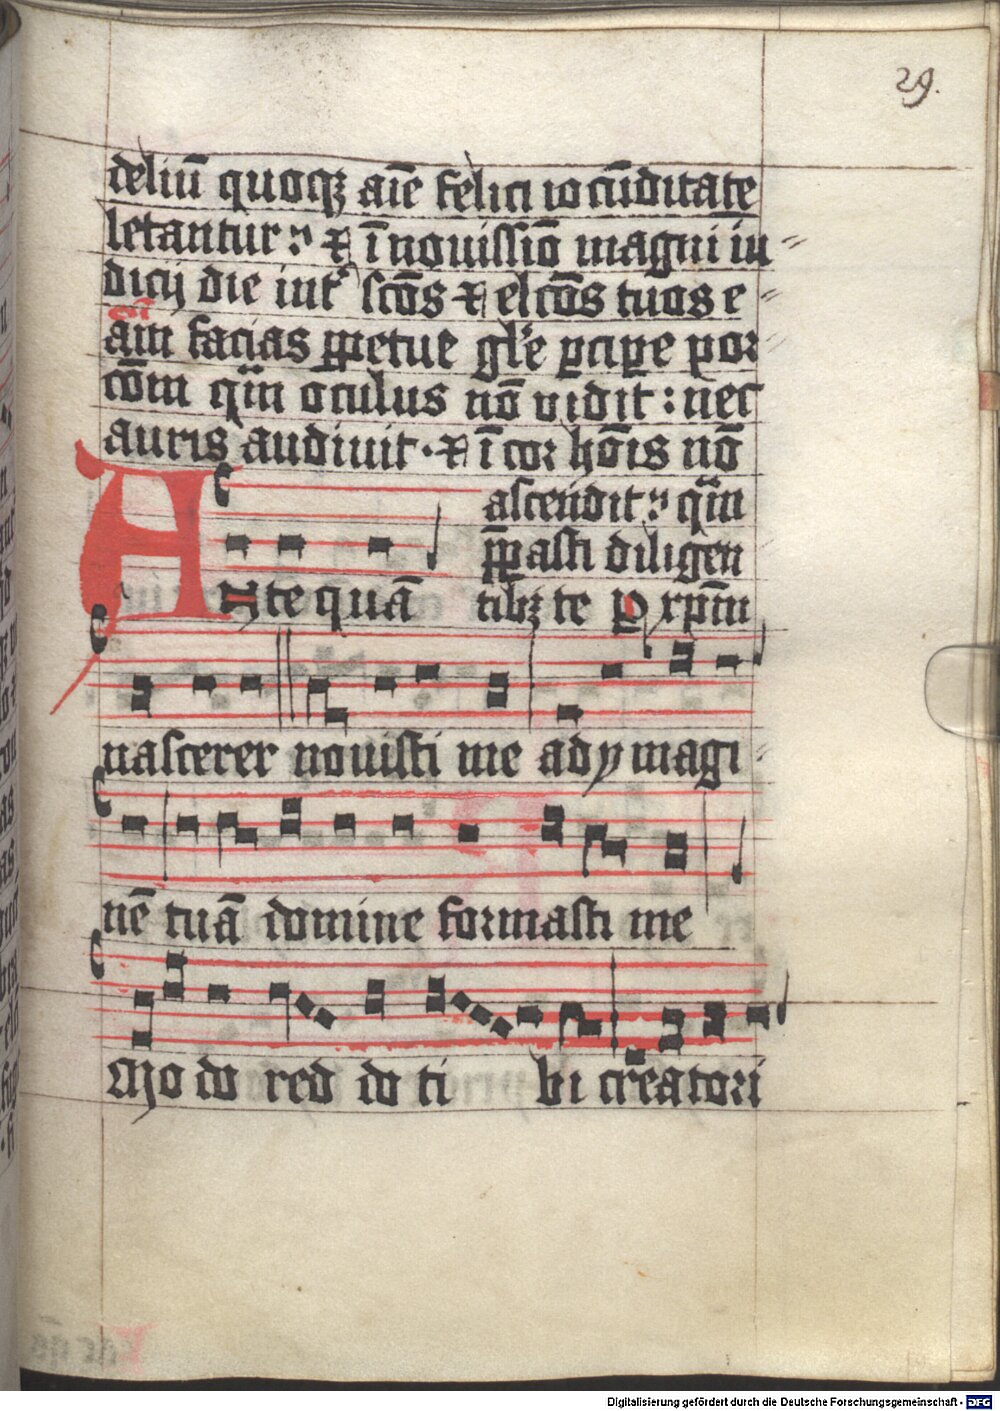 29.
deliū quoqꝫ aīe felici iocūditate
letantur: ⁊ ī nouissīo magni iu
dicij die int̉ scōs ⁊ elcōs tuos e
eū
aīm facias ꝑpetue gl̄e ꝑcipe por
cōm qm̄ oculus nō vidit: nec
auris audiuit. ⁊ ī cor hōis nō
ascendit: qm̄
p̄pasti diligen
Ante quā tibꝫ te ꝑ xp̄m
nascerer nouisti me ad ymagi
nē tuā domine formasti me
Modo red do ti bi creatori
Digitalisierung gefördert durch die Deutsche Forschungsgemeinschaft - DFG